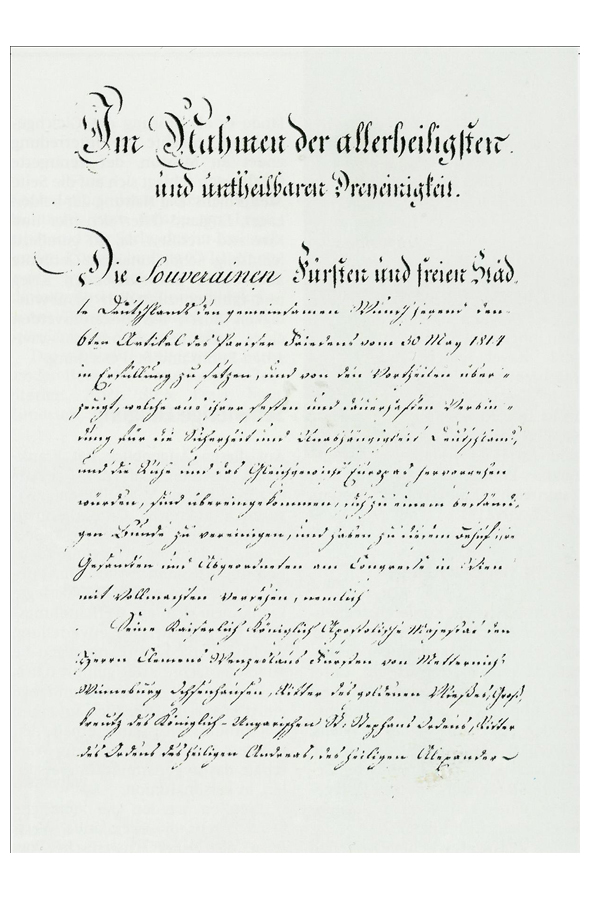 Im Nahmen der allerheiligsten
und untheilbaren Dreyeinigkeit.
Die Souverainen Fürsten und freien Städ-
te Deutschlands den gemeinsamen Wunsch hegend den
6ten Artikel des Pariser Friedens vom 30 May 1814
in Erfüllung zu setzen, und von den Vortheilen über-
zeugt, welche aus ihrer festen und dauerhaften Verbin-
dung für die Sicherheit und Unabhängigkeit Deutschlands,
und die Ruhe und das Gleichgewicht Europas hervorgehen
würden, sind übereingekommen, sich zu einem beständi-
gen Bunde zu vereinigen, und haben zu diesem Behuf ihre
Gesandten und Abgeordneten am Congresse in Wien
mit Vollmachten versehen, nemlich
Seine Kaiserlich Königlich Apostolische Majestät den
Herrn Clemens Wenzeslaus Fürsten von Metternich-
Winneburg Ochsenhausen, Ritter des goldenen Vließes, Groß-
kreutz des Königlich-Ungarischen St. Stephans Ordens, Ritter
des Ordens des heiligen Andreas, des heiligen Alexander